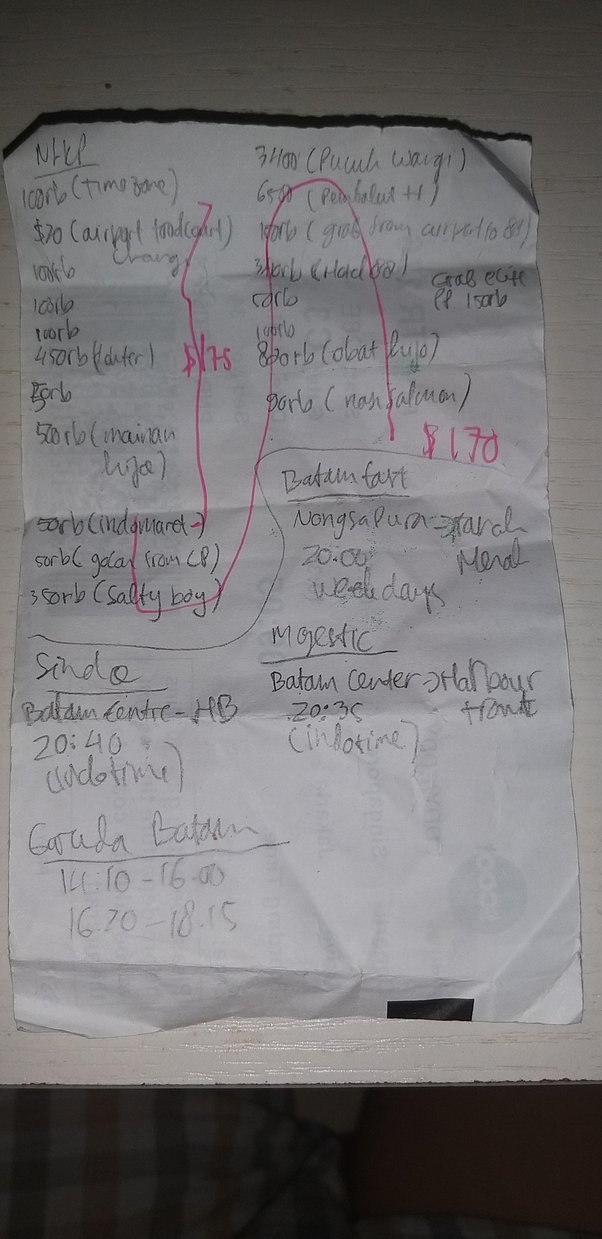 100rb (Timezone)
$20 (airport foodcourt)
100rb
100rb
100rb
450rb (
50rb
500rb (mainan
hijo)
50rb (indomaret)
50rb ( gocar from CP)
350rb (Salty boy)
$175
3400 (Pucuk
6500 (Pembalut H)
100rb ( grab from airport to 88)
(Hotel 88)
50rb
100rb
800rb (obat hijo)
90rb ( nasi salmon)
Grab
PP 150rb
$170
Batam fast
Nongsapura ->
20:00
weekdays
Majestic
Batam Center -> Harbour
front
20:35
(indotime)
Sindo
Batam Centre - HB
20:40
(indotime)
Garuda Batam
14:10 - 16.00
16.20 - 18.15